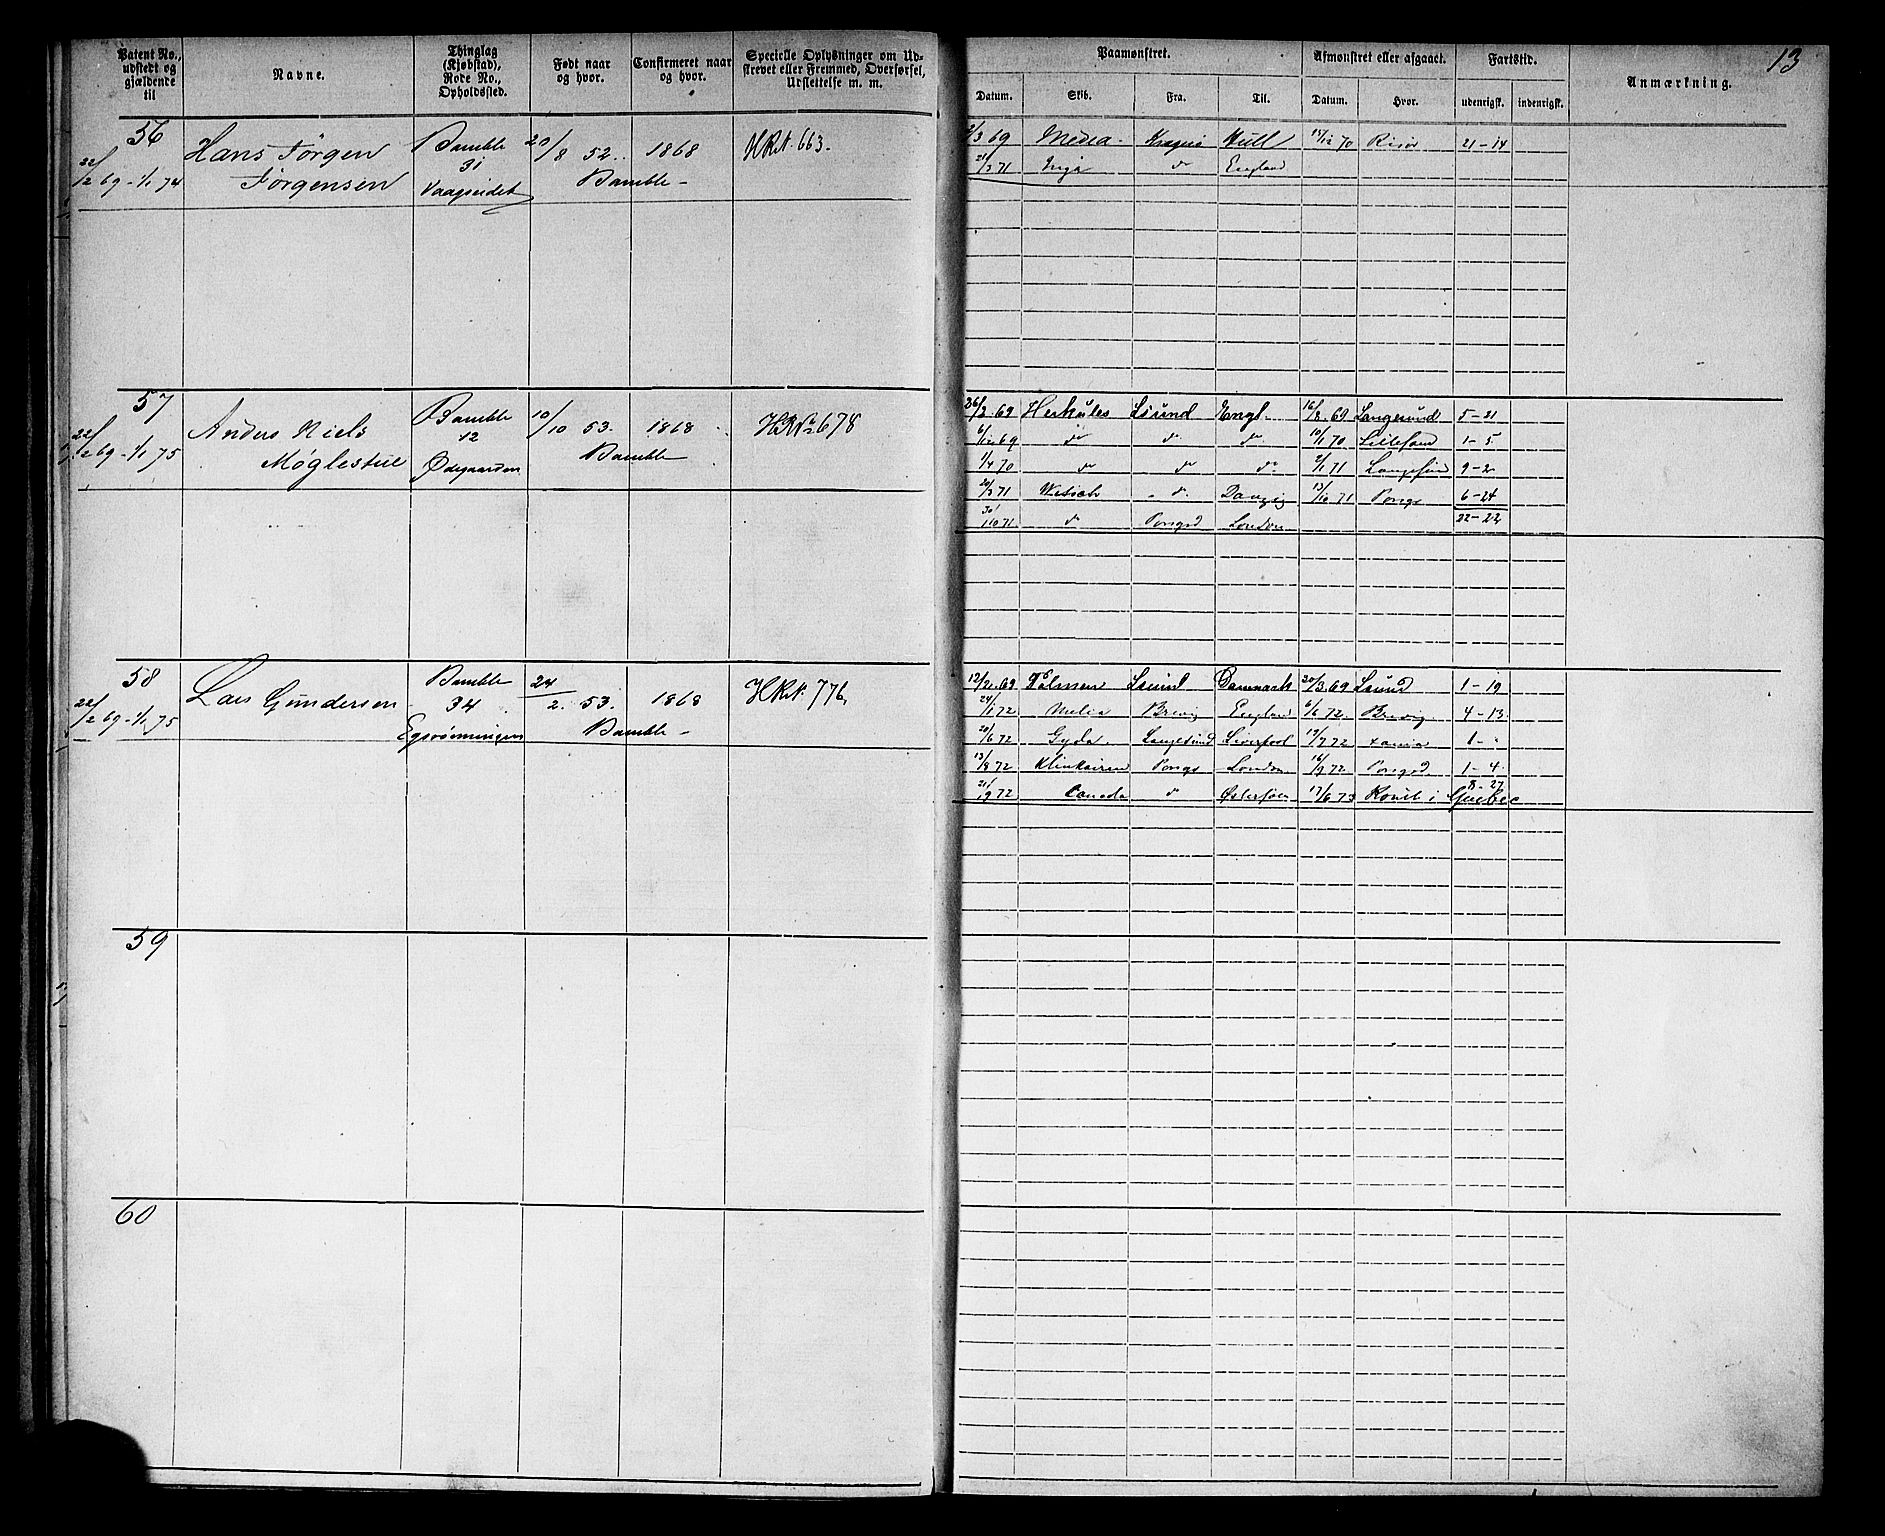 13
Patent No., udstedt og gjældende til
Navne.
Thinglag (Kjøbstad), Rode No., Opholdssted.
Født naar og hvor.
Confirmeret naar og hvor.
Specielle Oplysninger om Udstrevet eller Fremmed, Overførsel, Utslettelse m. m.
Paamønstret.
Afmønstret eller afgaaet.
Fartstid.
Anmærkning.
Datum. Skib. Fra. Til. Datum. Hvor. udenrigsk. indenrigsk.
56
22/2 69 - 1/1 74
Hans Jørgen
Jørgensen
Bamble
31
Vaagseidet
20/8 52. 1868
Bamble -
HRNr. 663.
2/3 69 Media Kragerø Hull 17/12 70 Risør 21 - 14
21/3 71 Inga do England
57
22/2 69 - 1/1 75
Anders Niels
Møglestue
Bamble
12
Ødegaarden
10/10 53. 1868
Bamble
HRNo 678
26/2 69 Herkules Lsund Engl. 16/8 69 Langesund 5 - 21
6/12 69 do do do 10/1 70 Lillesand 1 - 5
1/4 70 do do do 2/1 71 Langesund 9 - 2
20/3 71 - do. Danzig 13/10 71 Porsgr 6 - 24
30/10 71 do Porsgrd London 22 - 22
58
22/2 69 - 1/1 75
Lars Gundersen
Bamble
34
24/2. 53. 1868
Bamble -
HRNr. 776.
12/2 69 Lsund Danmark 20/3 69 Lsund 1 - 19
24/1 72 Brevig England 6/6 72. Brevig 4 - 13
20/6 72 Gyda. Langesund Liverpool 19/7 72 1 - "
13/8 72 Porsgr London 16/9 72 Porsgrd 1 - 4
21/9 72 Canada do 17/6 73 Rømt i Quebec 8 - 27
59
60